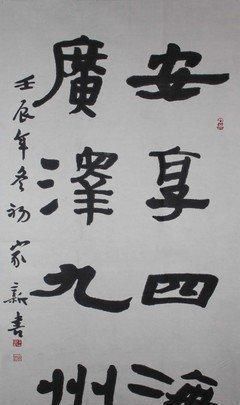 安享四海
廣澤九州
壬辰年冬初家新書